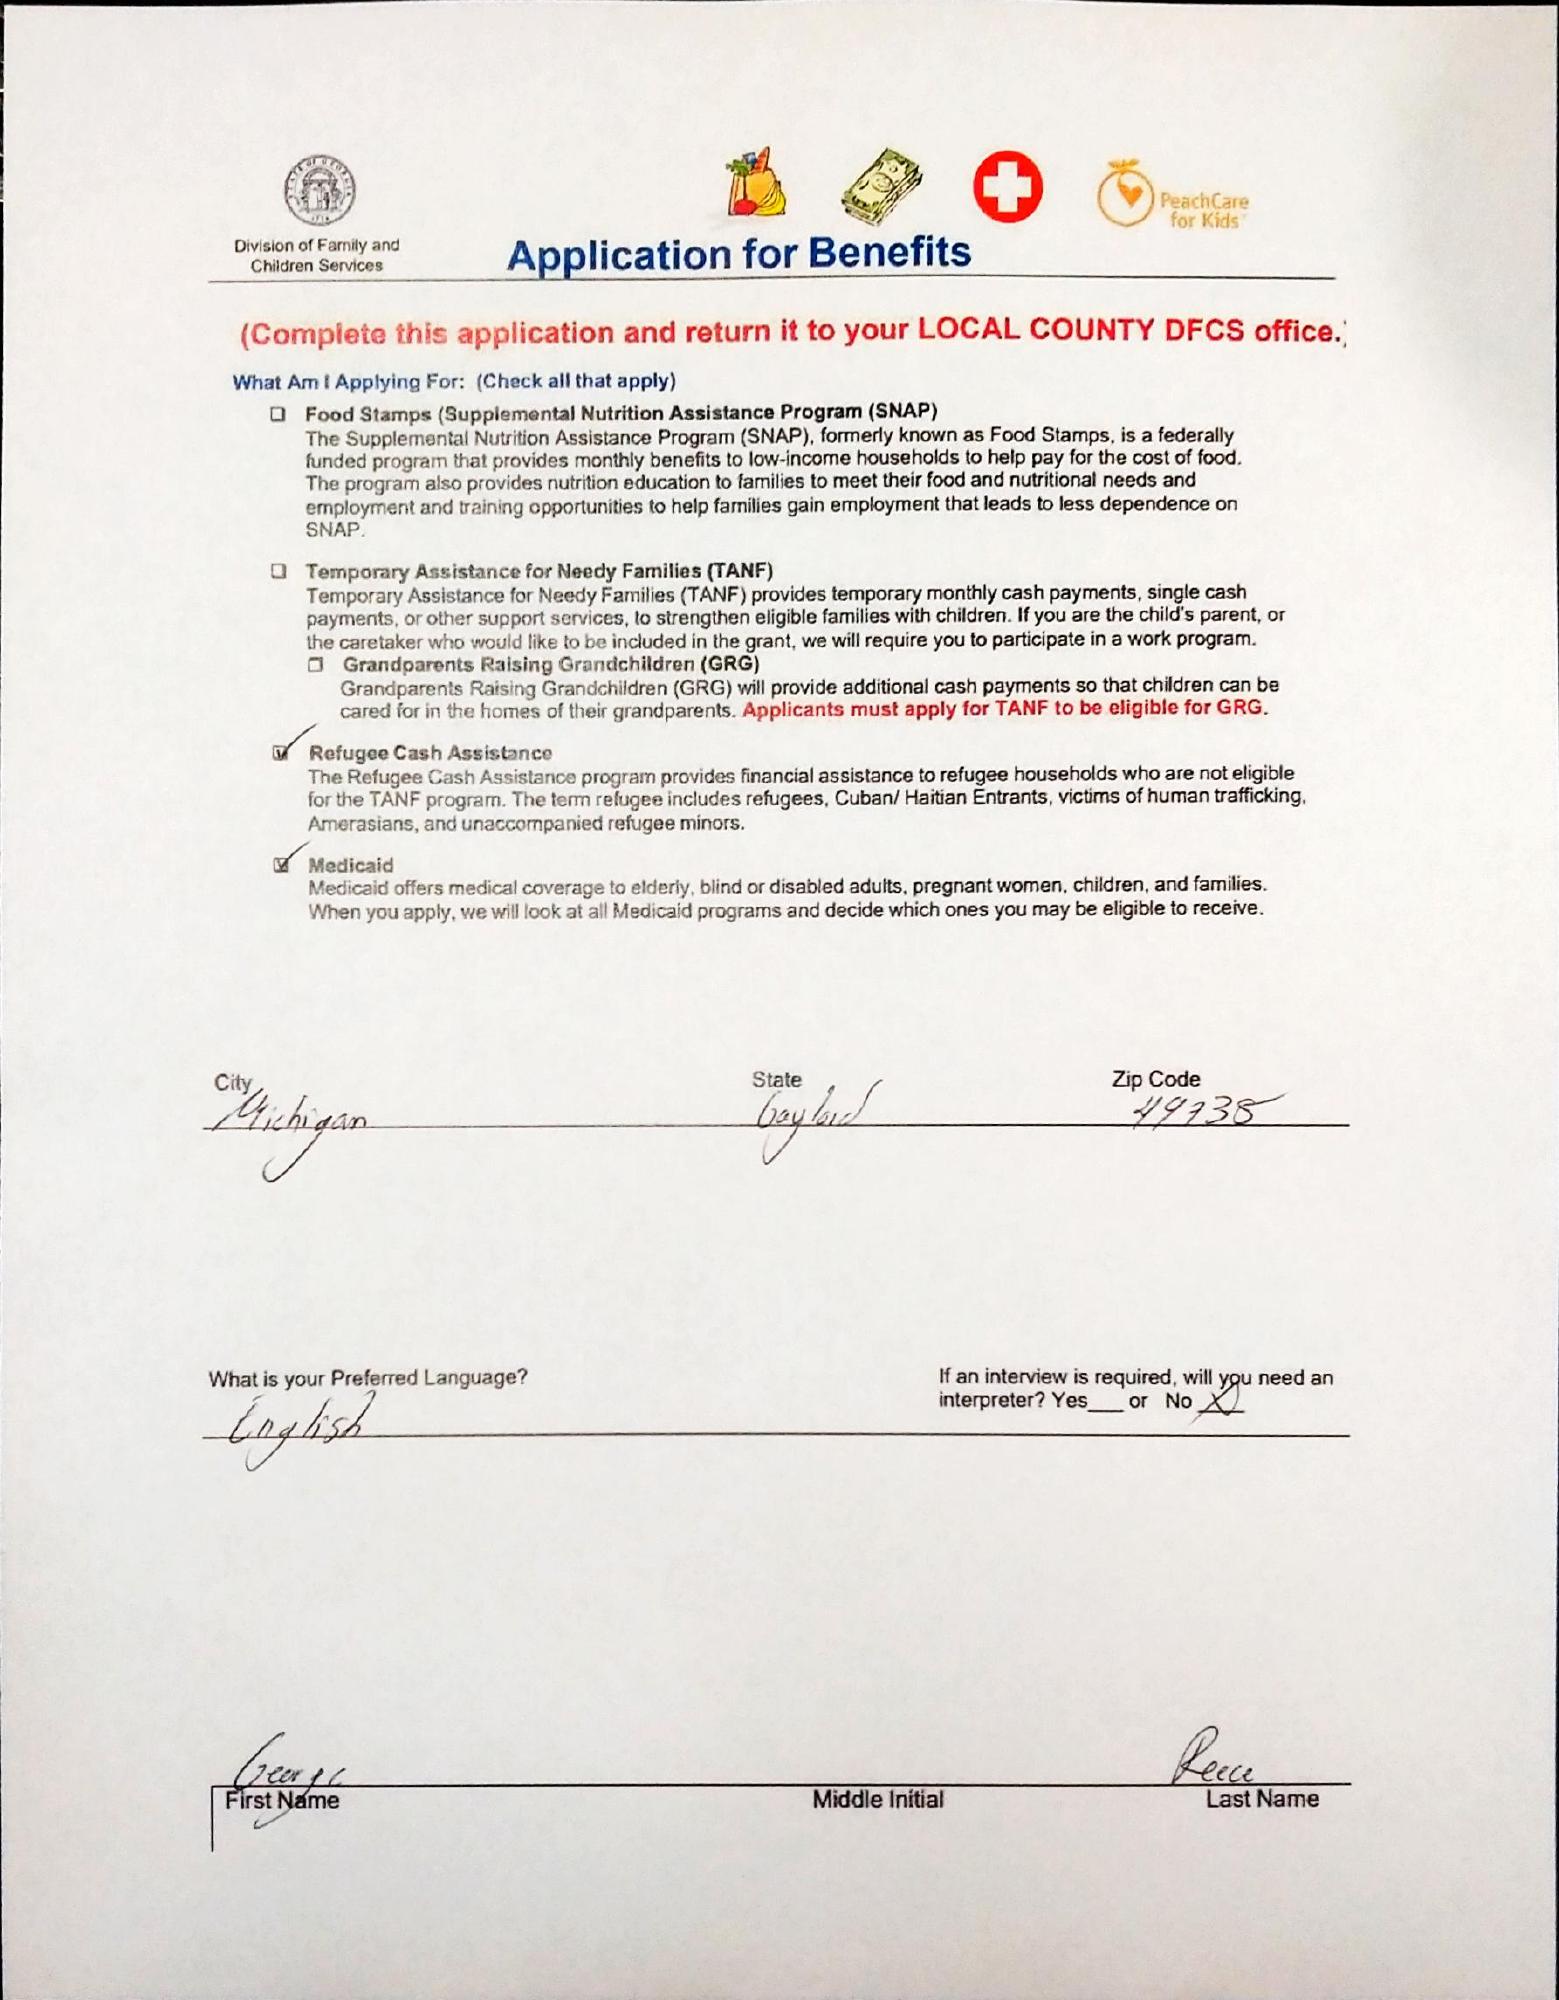 PeachCare
for Kids
Division of Family and
Children Services
Application for Benefits
(Complete this application and return it to your LOCAL COUNTY DFCS office.)
What Am I Applying For: (Check all that apply)
Food Stamps (Supplemental Nutrition Assistance Program (SNAP)
The Supplemental Nutrition Assistance Program (SNAP), formerly known as Food Stamps, is a federally
funded program that provides monthly benefits to low-income households to help pay for the cost of food.
The program also provides nutrition education to families to meet their food and nutritional needs and
employment and training opportunities to help families gain employment that leads to less dependence on
SNAP.
Temporary Assistance for Needy Families (TANF)
Temporary Assistance for Needy Families (TANF) provides temporary monthly cash payments, single cash
payments, or other support services, to strengthen eligible families with children. If you are the child's parent, or
the caretaker who would like to be included in the grant, we will require you to participate in a work program.
Grandparents Raising Grandchildren (GRG)
Grandparents Raising Grandchildren (GRG) will provide additional cash payments so that children can be
cared for in the homes of their grandparents. Applicants must apply for TANF to be eligible for GRG.
Refugee Cash Assistance
The Refugee Cash Assistance program provides financial assistance to refugee households who are not eligible
for the TANF program. The term refugee includes refugees, Cuban/ Haitian Entrants, victims of human trafficking,
Amerasians, and unaccompanied refugee minors.
Medicaid
Medicaid offers medical coverage to elderly, blind or disabled adults, pregnant women, children, and families.
When you apply, we will look at all Medicaid programs and decide which ones you may be eligible to receive.
City State Zip Code
Michigan Gaylord 49735
What is your Preferred Language? If an interview is required, will you need an
interpreter? Yes___ or No X
English
George Reece
First Name Middle Initial Last Name